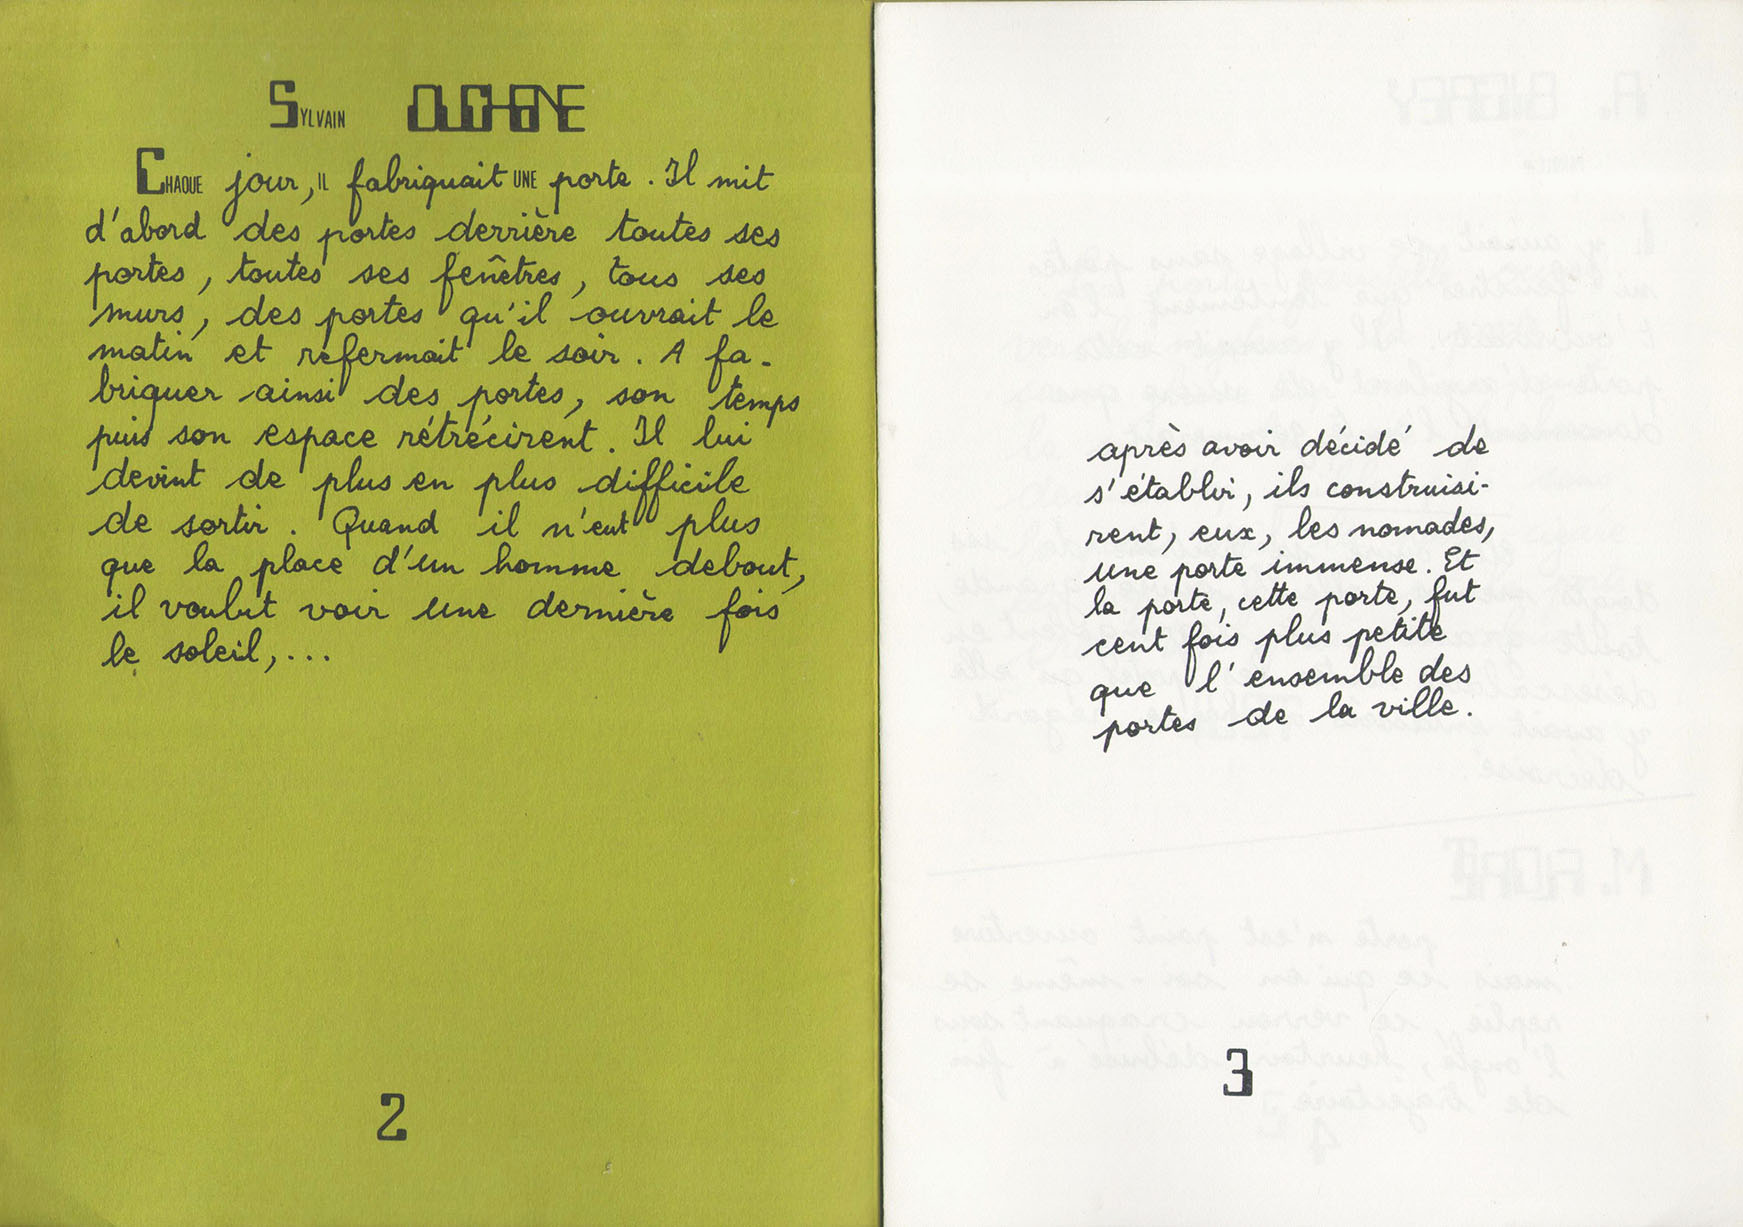 SYLVAIN
CHAQUE jour, IL fabriquait UNE porte. Il mit
d'abord des portes derrière toutes ses
portes, toutes ses fenêtres, tous ses
murs, des portes qu'il ouvrait le
matin et refermait le soir. A fa-
briquer ainsi des portes, son temps
puis son espace rétrécirent. Il lui
devint de plus en plus difficile
de sortir. Quand il n'eut plus
que la place d'un homme debout,
il voulut voir une dernière fois
le soleil,...
2
après avoir décidé de
s'établir, ils construisi-
rent, eux, les nomades,
une porte immense. Et
la porte, cette porte, fut
cent fois plus petite
que l'ensemble des
portes de la ville.
3